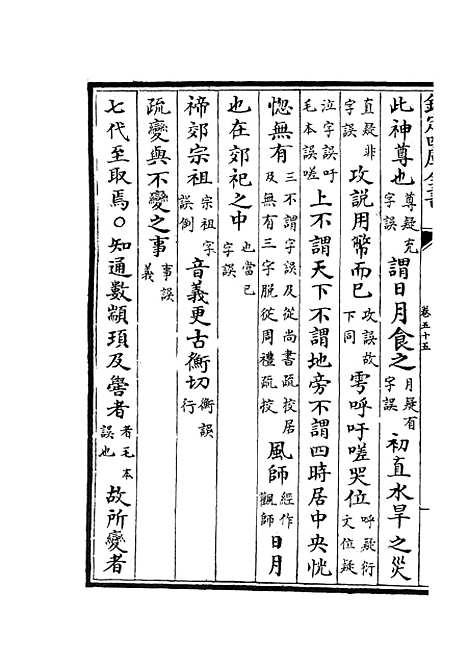 欽定四庫全書
卷五十五
此神尊也尊疑克字誤謂日月食之月疑有字誤初直水旱之災
直疑非字誤攻説用幣而巳攻誤故下同雩呼吁嗟哭位呼疑衍文位疑
泣字誤吁毛本誤嗟上不謂天下不謂地旁不謂四時居中央恍
惚無有三不謂字誤及從尚書疏挍居及無有三字脱從周禮疏挍風師經作觀師日月
也在郊祀之中也當巳字誤
禘郊宗祖宗祖字誤倒音義更古衡切衡誤行
疏變與不變之事事誤義
七代至取焉○知通數顓頊及嚳者者毛本誤也故所變者